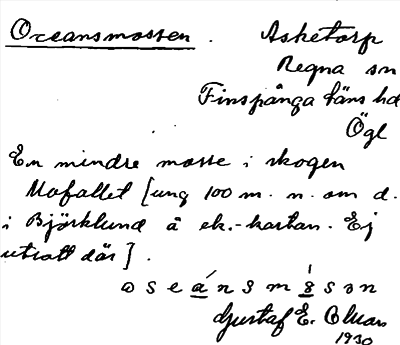 Oceansmossen. Asketorp
Regna sn
Finspånga läns hd
Ögl
En mindre mosse i skogen
Mofallet [ung 100 m. n. om d.
i Björklund å ek.-kartan. Ej
utsatt där].
ɷseánsmåsən
Gustaf E.
1930